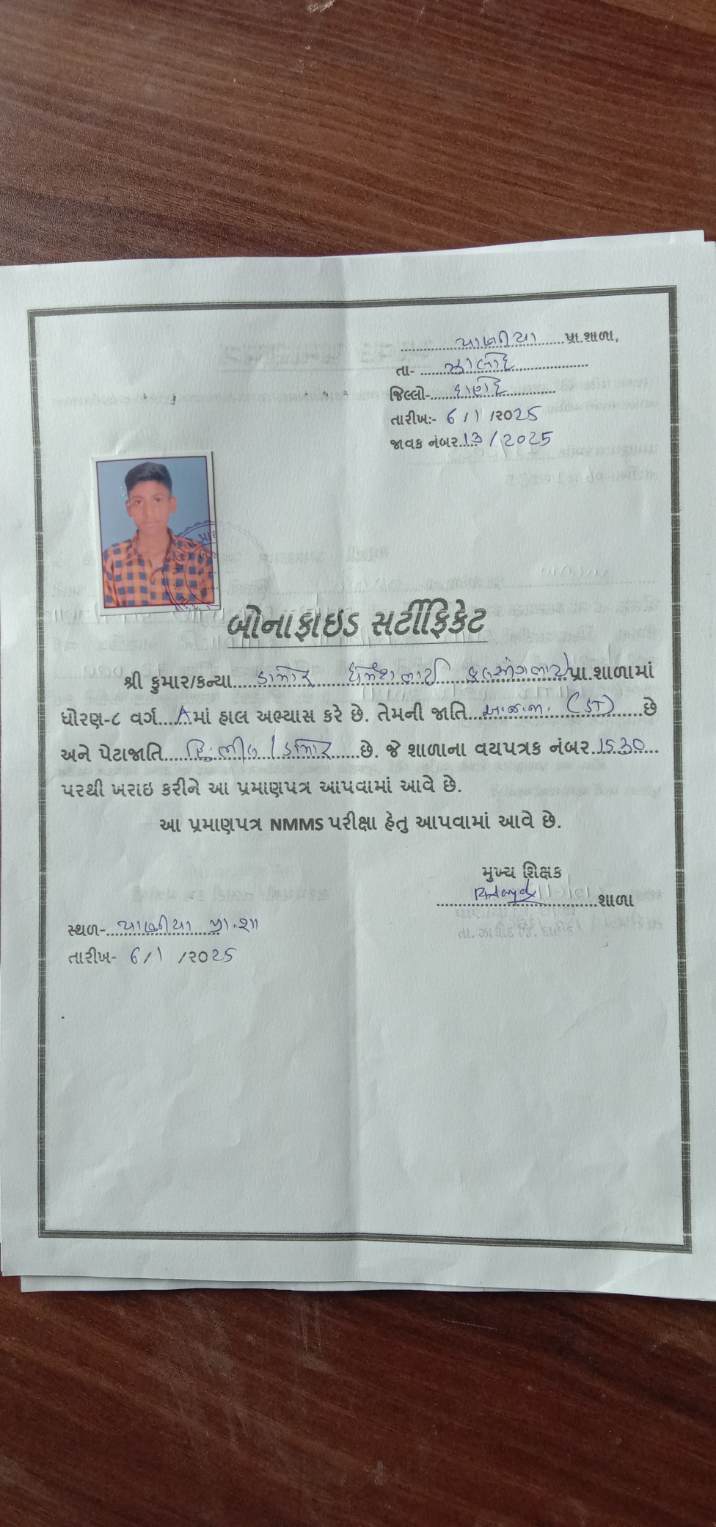 ચાણીયા પ્રા.શાળા,
તા- ઝાલોદ
જિલ્લો- દાહોદ
તારીખ:- 6/1/2025
જાવક નંબર. 13/2025
બોનાફાઇડ સર્ટીફિકેટ
શ્રી કુમાર/કન્યા ડામોર પ્રા.શાળામાં
ધોરણ-૮ વર્ગ A માં હાલ અભ્યાસ કરે છે. તેમની જાતિ (ST) છે
અને પેટાજાતિ હિ.ભીલ / ડામોર છે. જે શાળાના વયપત્રક નંબર 1530
પરથી ખરાઇ કરીને આ પ્રમાણપત્ર આપવામાં આવે છે.
આ પ્રમાણપત્ર NMMS પરીક્ષા હેતુ આપવામાં આવે છે.
મુખ્ય શિક્ષક
શાળા
સ્થળ- ચાણીયા પ્રા.શા
તારીખ- 6/1/2025